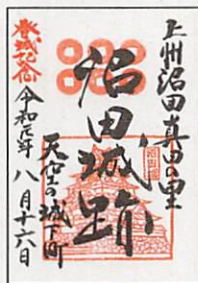 上州沼田真田の里
沼田城跡
天空の城下町
登城記念
令和元年 八月十六日